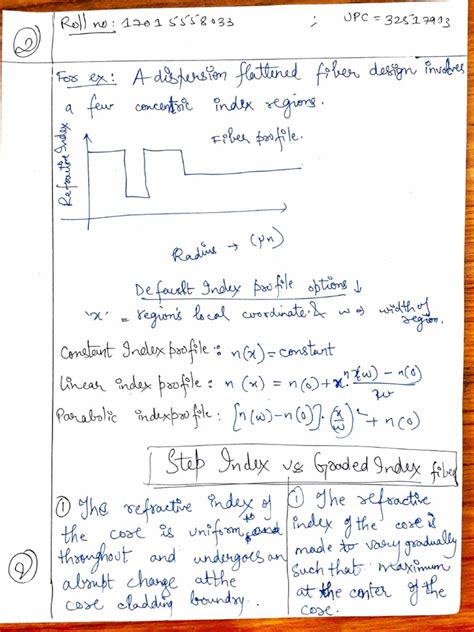 2
Roll no: 17015558033 ; UPC = 32517913
For ex: A dispersion flattened fiber design involves
a few concentric index regions.
Fiber profile.
Refractive Index
Radius → (μn)
Default Index profile options ↓
'x' = region's local coordinate & w → width of
region.
Constant Index profile : n(x) = constant
Linear index profile : n(x) = n(0) + x. n(w) - n(0)
w
Parabolic index profile : [n(w) - n(0)] . (x/w)² + n(0)
Step Index vs Graded Index fiber
① The refractive index of
the core is uniform
throughout and undergoes an
abrupt change at the
core cladding boundry.
① The refractive
index of the core is
made to vary gradually
such that maximum
at the center of the
core.
2